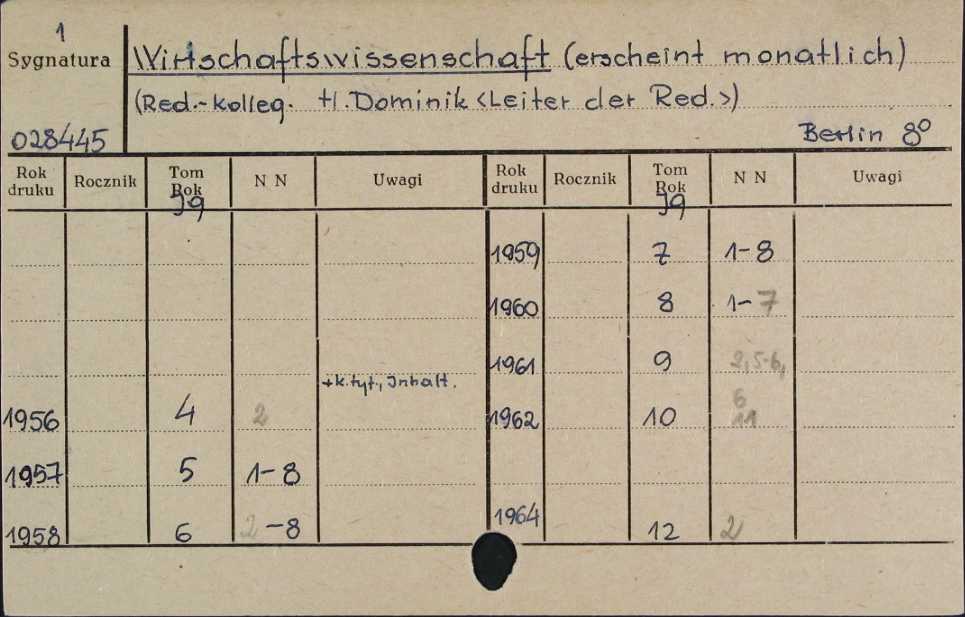 1
Sygnatura
Wirtschaftswissenschaft (erscheint monatlich)
(Red.-Kolleg. H. Dominik <Leiter der Red.>)
028445
Berlin 8°
Rok druku Rocznik Tom Rok N N Uwagi Rok druku Rocznik Tom Rok N N Uwagi
Jg Jg
1959 7 1-8
1960 8 1-7
1961 9 2,5-6,
+k.tyt., Inhalt.
1956 4 2
1962 10 6 11
1957 5 1-8
1958 6 2-8
1964 12 2